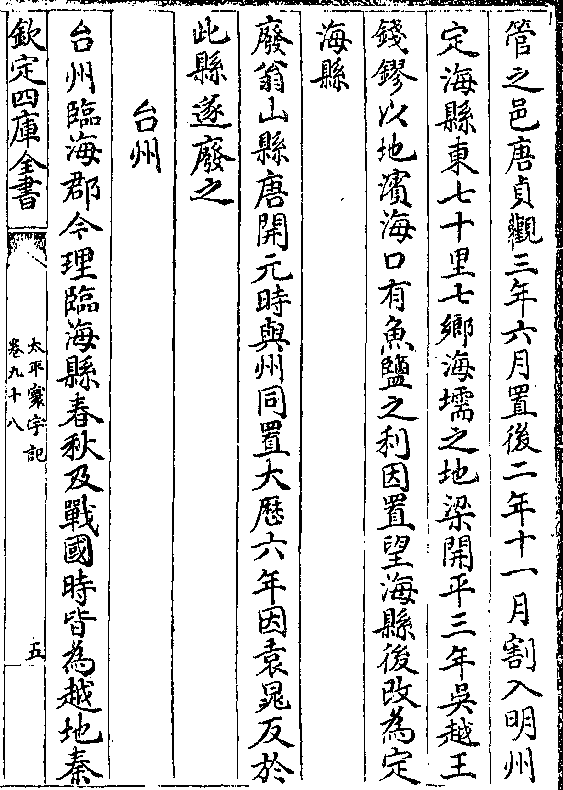 管之邑唐貞觀三年六月置後二年十一月割入明州
定海縣東七十里七鄉海壖之地梁開平三年吳越王
錢鏐以地濱海口有魚鹽之利因置望海縣後改為定
海縣
廢翁山縣唐開元時與州同置大厯六年因袁晁反於
此縣遂廢之
台州
台州臨海郡今理臨海縣春秋及戰國時皆為越地秦
欽定四庫全書
太平寰宇記
卷九十八
五